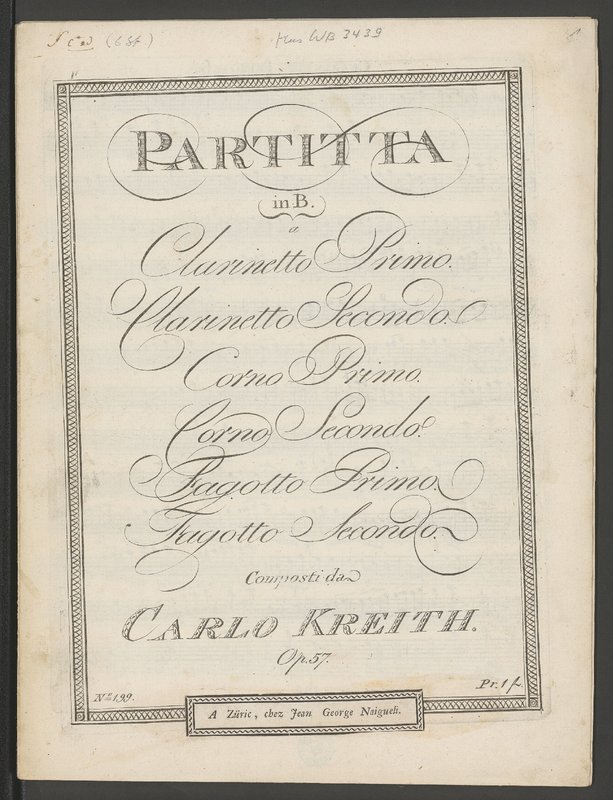 Mus WB 3439
PARTITTA
in B.
a
Clarinetto Primo.
Clarinetto Secondo.
Corno Primo.
Corno Secondo.
Fagotto Primo.
Fagotto Secondo.
Composti da
CARLO KREITH.
Op. 57.
No. 199.
Pr. 1 f.
A Züric, chez Jean George Naigueli.